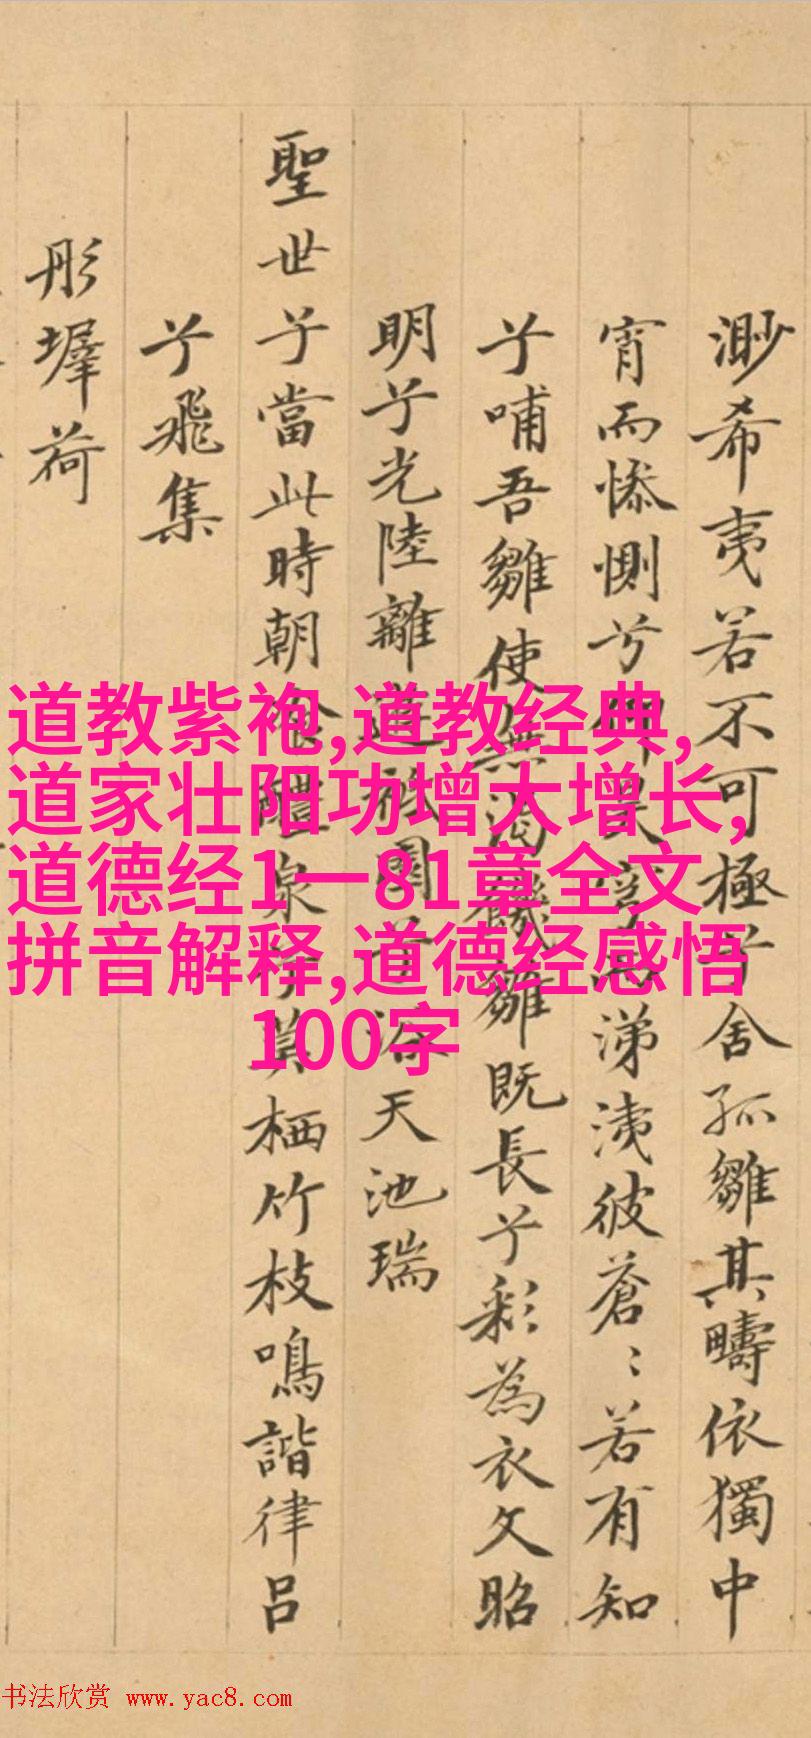 渺希夷若不可極兮舍孤雛其疇依獨中
宵而惨惻兮仰昊穹而涕洟彼蒼〻若有知
兮哺吾雛使無渴饑雛既長兮彩為衣文昭
明兮光陸離遊祇園兮浴天池瑞
聖世兮當此時朝飲醴泉兮莫栖竹枝鳴諧律呂
兮飛集
彤墀荷
道教紫袍,道教经典,
道家壮阳功增大增长,
道德经1一81章全文
拼音解释,道德经感悟
100字
书法欣赏 www.yac8.com